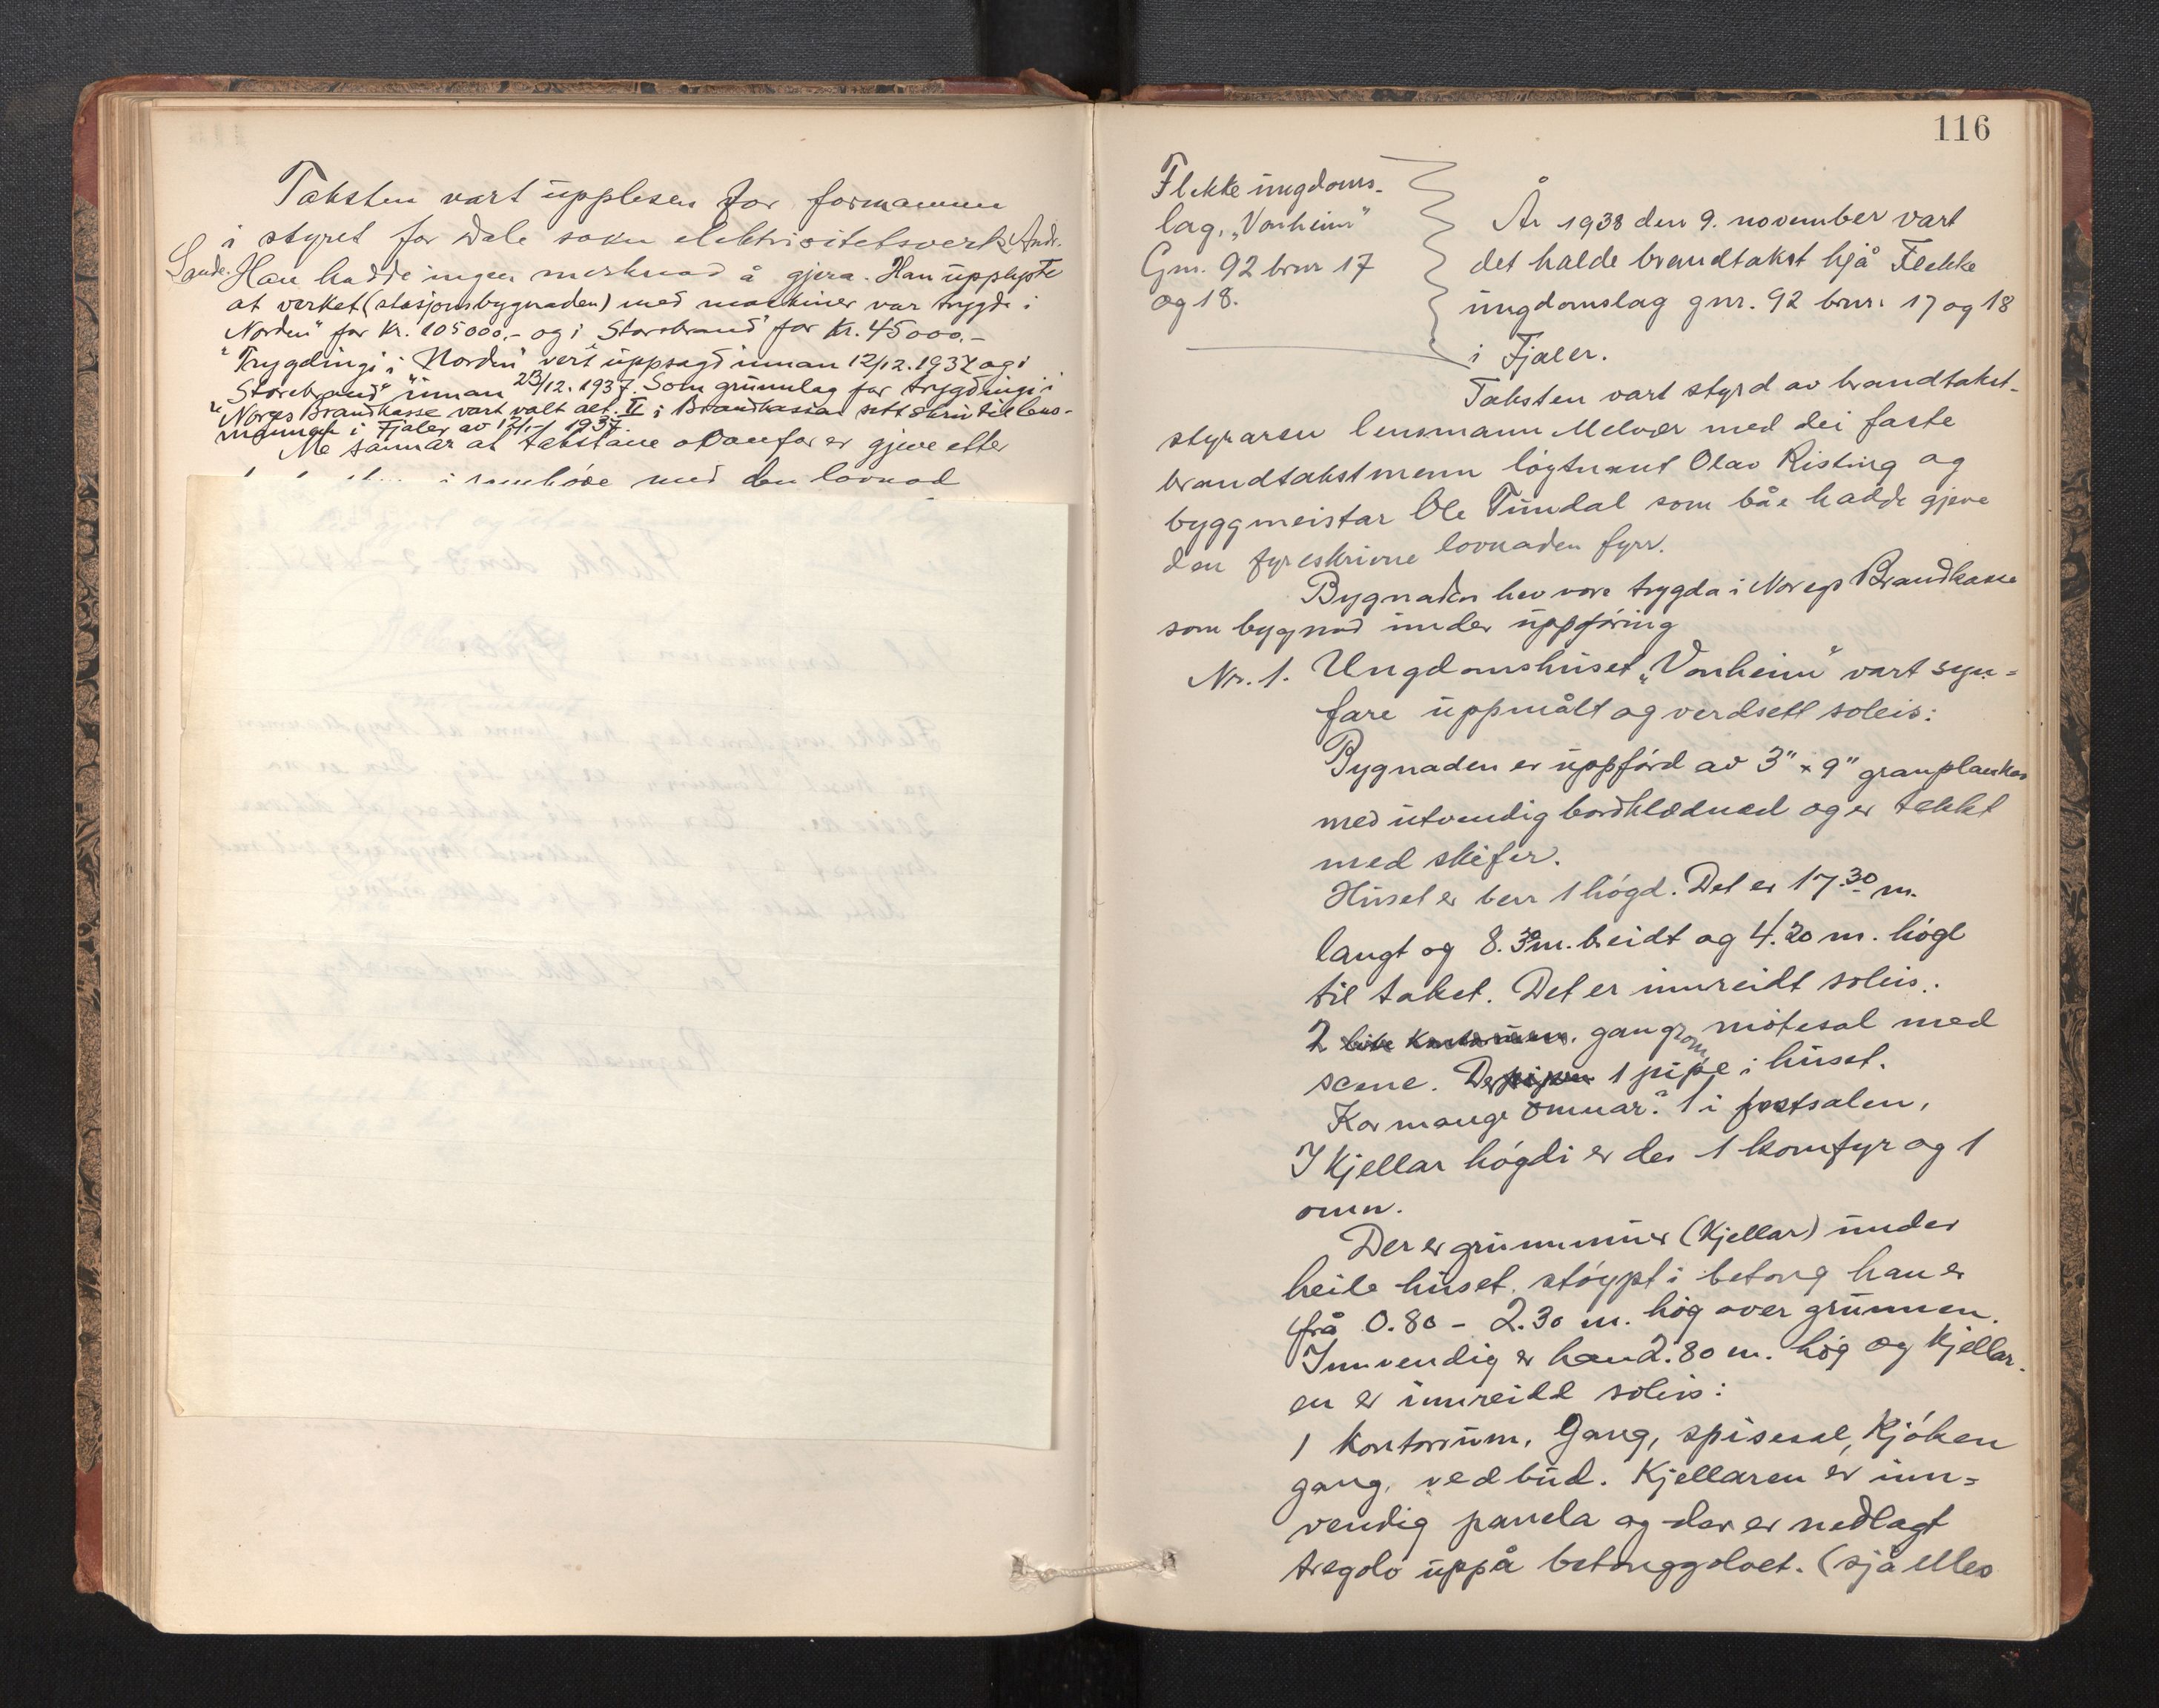 Taksten vart upplesen for formannen
i styret for Dale sokn elektrisitetsverk Andr.
Sande. Han hadde ingen merknad å gjera. Han upplyste
at verket (stasjonsbygnaden) med maskiner var trygda i
Norden" for kr. 105000,- og i "Storebrand" for kr. 45000,-
"Trygdingi i "Norden" vert uppsagd innan 12/12.1937 og i
Storebrand" innan 23/12.1937. Som grunnlag for trygdingi i
"Norges Brandkasse vart valt alt. II i Brandkassas skriv til lens-
mannen i Fjaler av 1937.
Me sannar at takstane ovanfor er gjeve etter
i samhøve med den lovnad
116
Flekke ungdoms-
lag, "Vonheim"
Gnr. 92 brnr 17
og 18.
År 1938 den 9. november vart
det halde brandtakst hjå Flekke
ungdomslag gnr. 92 brnr. 17 og 18
i Fjaler.
Taksten vart styrd av brandtakst-
styraren lensmann Melvær med dei faste
brandtakstmenn løytnant Olav Risting og
byggmeistar Ole Tundal som båe hadde gjeve
den fyreskrivne lovnaden fyrr.
Bygnaden hev vore trygda i Noregs Brandkasse
som bygnad under uppføring
Nr. 1. Ungdomshuset "Vonheim" vart syn-
fare uppmålt og verdsett soleis:
Bygnaden er uppførd av 3" x 9" granplankar
med utvendig bordklædnad og er tekkt
med skifer.
Huset er berr 1 høgd. Det er 17.30 m.
langt og 8.30 m. breidt og 4.20 m. høgt
til taket. Det er innreidt soleis:
2 gangrom, møtesal med
scene. Der 1 pipe i huset.
Kor mange omnar? 1 i festsalen,
I kjellar høgdi er der 1 komfyr og 1
omn.
Der er grunnmur (kjellar) under
heile huset, støypt i betong han er
frå 0.80 - 2.30 m. høg over grunnen.
Innvendig er han 2.80 m. høg og kjellar-
en er innreidd soleis:
1 kontorrum, Gang, spisesal, kjøken
gang, vedbud. Kjellaren er inn-
vendig panela og der er nedlagt
tregolv uppå betonggolvet. (sjå elles